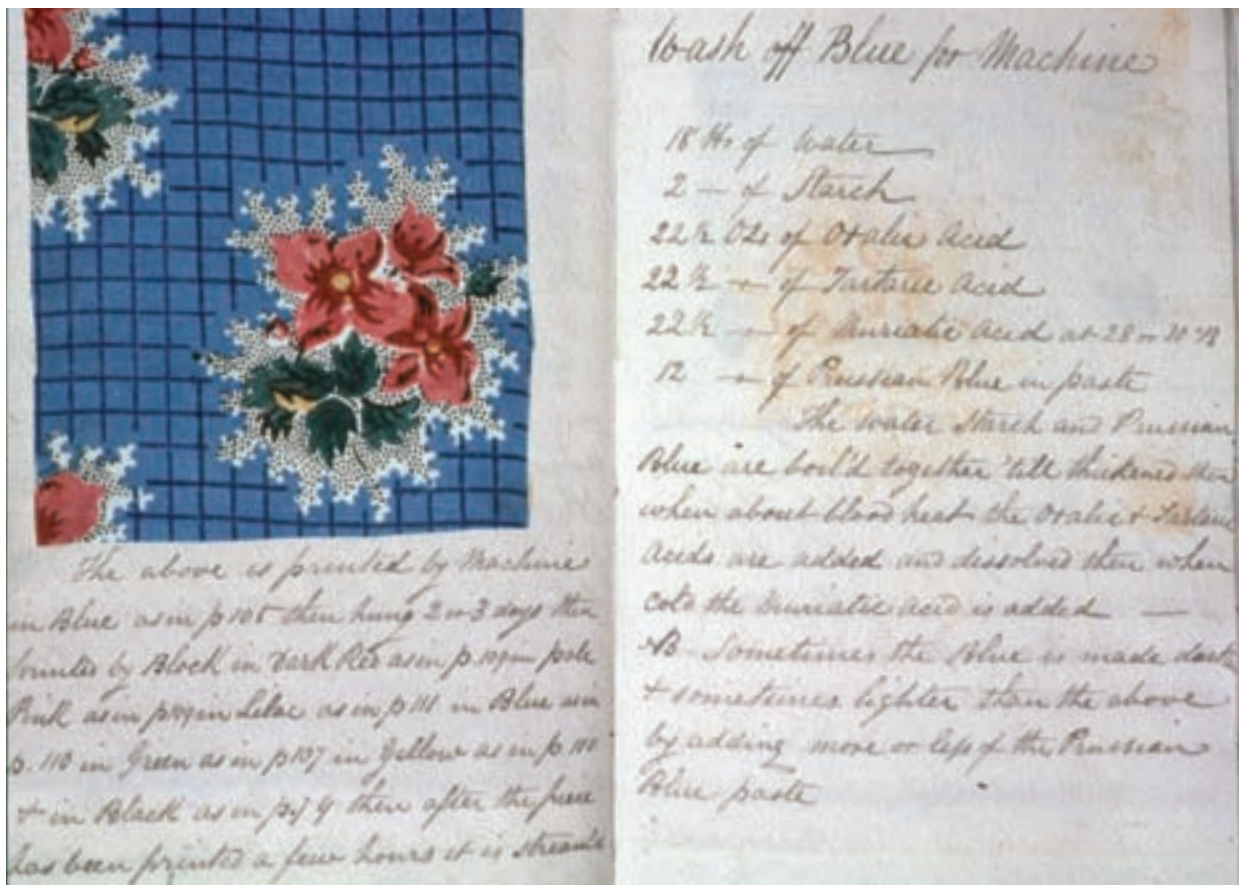 The above is printed by Machine
in Blue as in p 105 then hung 2 or 3 days then
by Block in Dark Red as in p. 109 in pale
Pink as in in Lilac as in p 111 in Blue as in
p. 110 in Green as in p 107 in Yellow as in p. 110
+ in Black as in then after the piece
has been printed a few hours it is
Wash off Blue for Machine
18 lbs of Water
2 — of Starch
22½ Ozs of Oxalic Acid
22½ — of Tartaric Acid
22½ — of Muriatic Acid at 28 or 30 °
12 — of Prussian Blue in paste
The water Starch and Prussian
Blue are boil'd together 'till thickened then
when about blood heat the Oxalic + Tartaric
Acids are added and dissolved then when
cold the Muriatic acid is added —
NB Sometimes the Blue is made dark
+ sometimes lighter than the above
by adding more or less of the Prussian
Blue paste